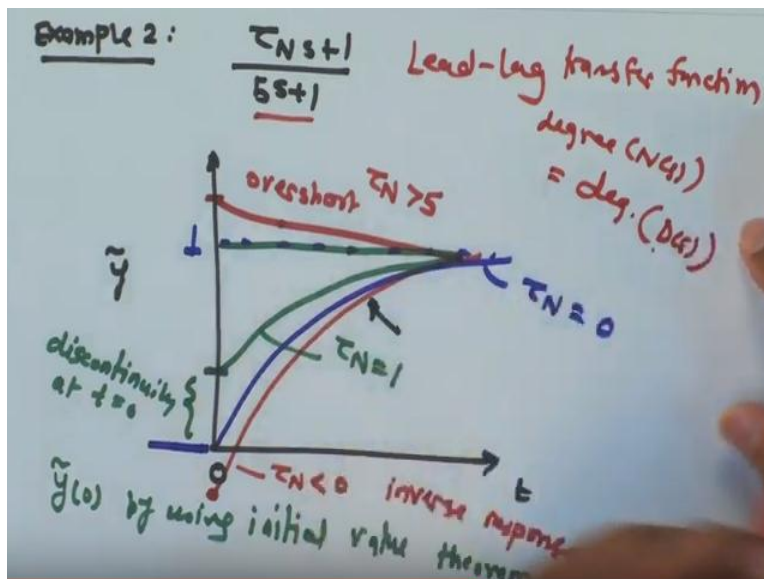 Example 2:
τN s+1
5s+1
Lead-lag transfer function
degree (N(s))
= deg. (D(s))
overshoot τN >5
1
ỹ
τN = 0
τN=1
discontinuity
at t=0
0
t
τN < 0 inverse response
ỹ(0) by using initial value theorem